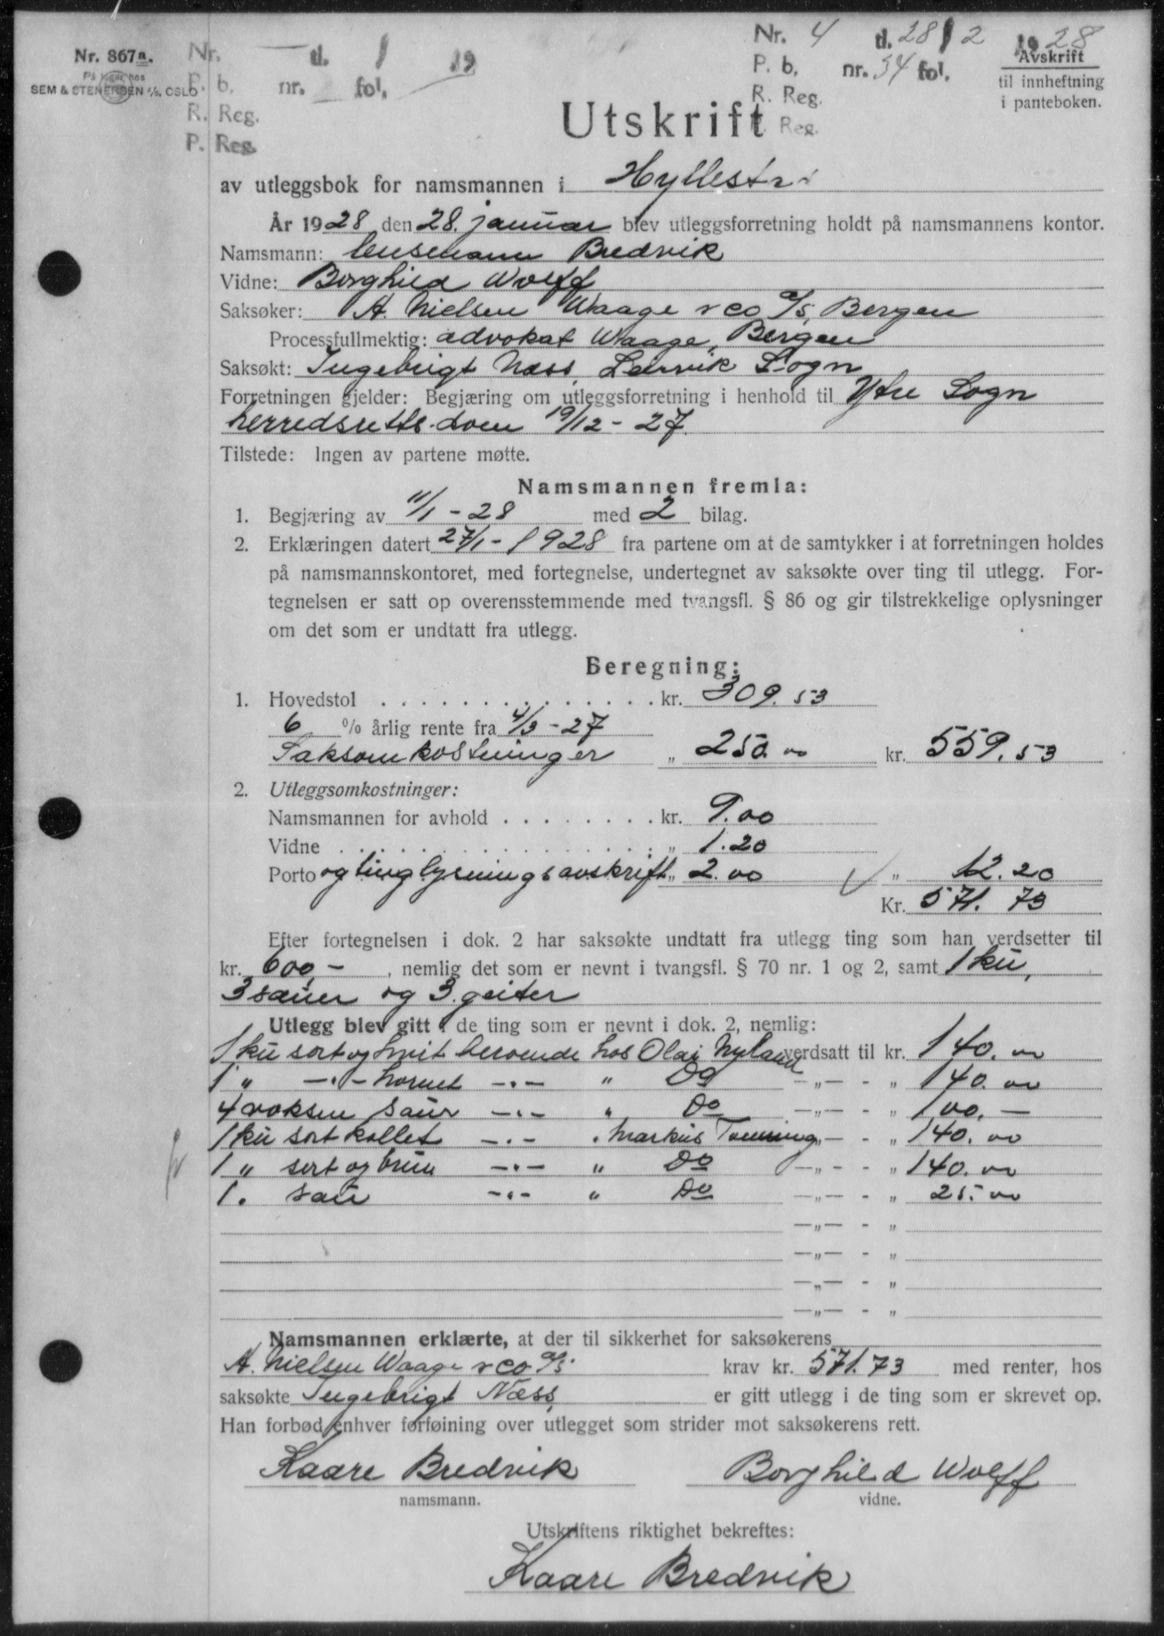 Nr. 867a.
På lager hos
SEM & STENERSEN A/S, OSLO
Nr. d. 19
P. b. nr. fol.
R. Reg.
P. Reg.
Nr. 4 d. 28/2 1928
P. b. nr. 34 fol.
R. Reg.
Reg.
Avskrift
til innheftning
i panteboken.
Utskrift
av utleggsbok for namsmannen i Hyllestad
År 1928 den 28. januar blev utleggsforretning holdt på namsmannens kontor.
Namsmann: lensmann Bredvik
Vidne: Borghild Wolff
Saksøker: A. Nielsen Waage & co A/S, Bergen
Processfullmektig: advokat Waage, Bergen
Saksøkt: Ingebrigt Næss, Leirvik Sogn
Forretningen gjelder: Begjæring om utleggsforretning i henhold til Ytre Sogn
herredsretts dom 19/12 - 27.
Tilstede: Ingen av partene møtte.
Namsmannen fremla:
1. Begjæring av 11/1 - 28 med 2 bilag.
2. Erklæringen datert 27/1 - 1928 fra partene om at de samtykker i at forretningen holdes
på namsmannskontoret, med fortegnelse, undertegnet av saksøkte over ting til utlegg. For-
tegnelsen er satt op overensstemmende med tvangsfl. § 86 og gir tilstrekkelige oplysninger
om det som er undtatt fra utlegg.
Beregning:
1. Hovedstol . . . . . . . . . . . . . . kr. 309.53
6 % årlig rente fra 4/3 - 27
Saksomkostninger „ 250.00 kr. 559.53
2. Utleggsomkostninger:
Namsmannen for avhold . . . . . . . . kr. 9.00
Vidne . . . . . . . . . . . . . . . . „ 1.20
Porto og tinglysningsavskrift „ 2.00 „ 12.20
Kr. 571.73
Efter fortegnelsen i dok. 2 har saksøkte undtatt fra utlegg ting som han verdsetter til
kr. 600,- , nemlig det som er nevnt i tvangsfl. § 70 nr. 1 og 2, samt 1 ku,
3 sauer og 3 geiter
Utlegg blev gitt i de ting som er nevnt i dok. 2, nemlig:
1 ku sort og hvit beroende hos Olai Nyland verdsatt til kr. 140.00
1 „ -"- hornet -"- „ Do —„— - „ 140.00
4 voksne sauer -"- „ Do —„— - „ 100.—
1 ku sort kollet -"- „ Markus —„— - „ 140.00
1 „ sort og brun -"- „ Do —„— - „ 140.00
1 . sau -"- „ Do —„— - „ 25.00
—„— - „
—„— - „
—„— - „
—„— - „
Namsmannen erklærte, at der til sikkerhet for saksøkerens
A. Nielsen Waage & co A/S krav kr. 571.73 med renter, hos
saksøkte Ingebrigt Næss, er gitt utlegg i de ting som er skrevet op.
Han forbød enhver forføining over utlegget som strider mot saksøkerens rett.
Kaare Bredvik Borghild Wolff
namsmann. vidne.
Utskriftens riktighet bekreftes:
Kaare Bredvik